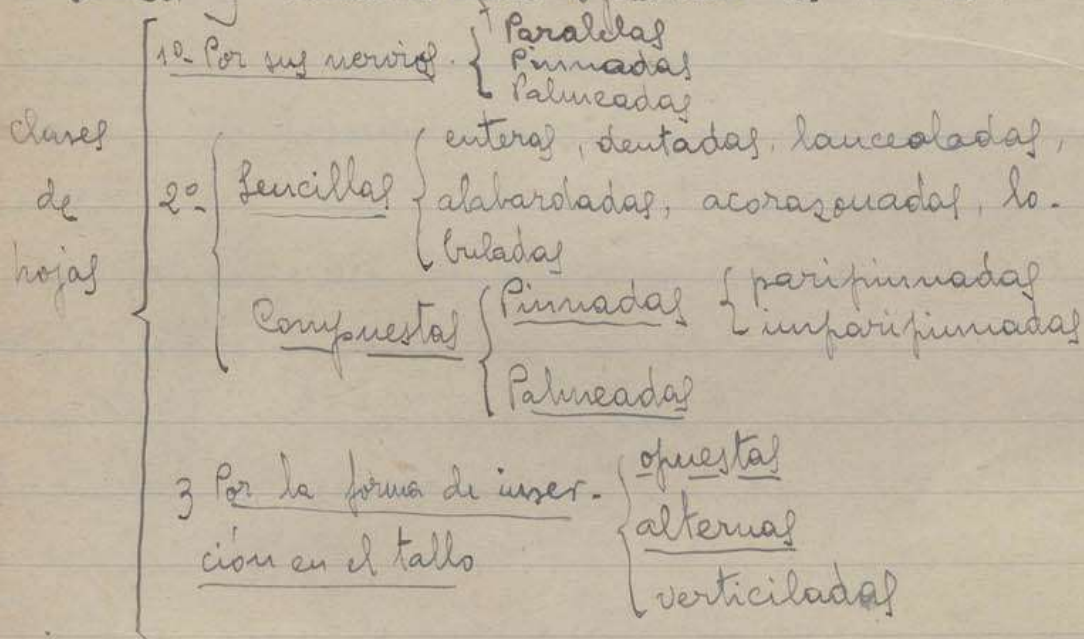 1º- Por sus nervios
Paralelas
Pinnadas
Palmeadas
clases
de
hojas
2º-
Sencillas
enteras, dentadas, lanceoladas,
alabardadas, acorazonadas, lo-
buladas
Compuestas
Pinnadas
paripinnadas
imparipinnadas
Palmeadas
3 Por la forma de inser-
ción en el tallo
opuestas
alternas
verticiladas